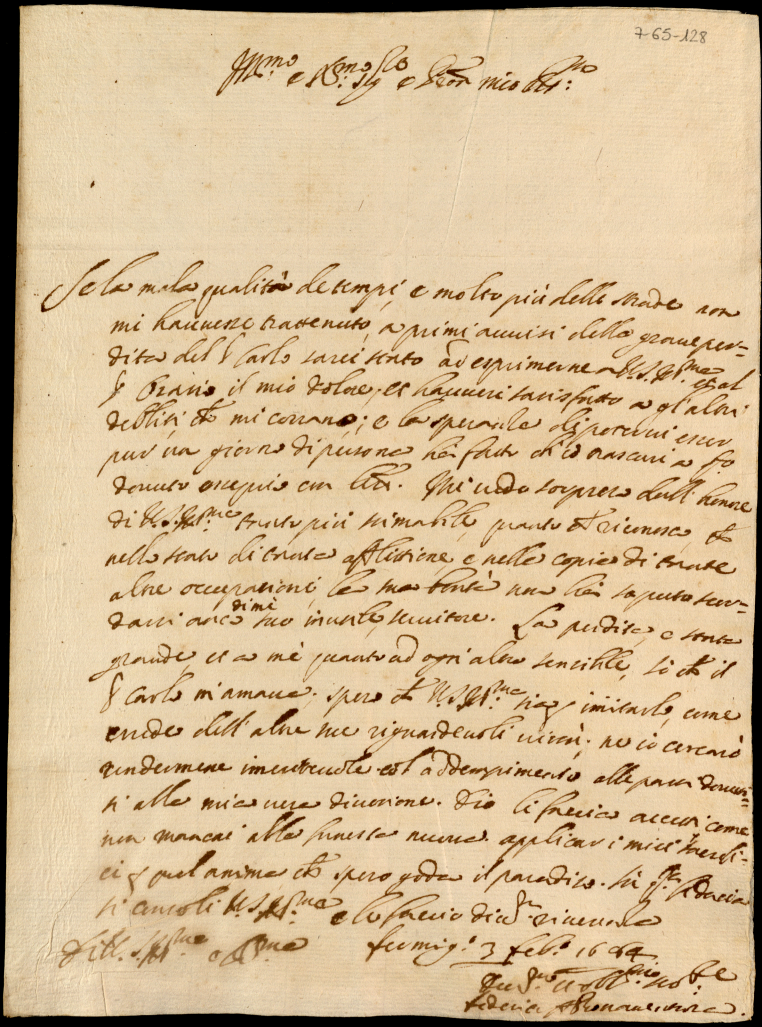 7-65-128
Ill.mo e R.mo Sig.r e Pron mio
Se la mala qualità de tempi, e molto più delle strade non
mi havesse trattenuto, a primi avvisi della grave per=
dita del S. Carlo sarei stato ad esprimerne a V.S. Ill.ma et al
S. Orazio il mio dolore, et haverei satisfatto a gl'altri
debiti che mi corrano; e la speranza di potervi esser
pur un giorno di persona ha fatto ch'io trascuri
dovuto ossequio con lre. Mi vedo sorpreso dall'honore
di V.S. Ill.ma tanto più stimabile, quanto che riconosco, che
nello stato di tanta afflittione e nella copia di tante
altre occupationi, la sua bontà non ha saputo scor=
darsi anco di mè suo inutile servitore. La perdita, è stata
grande, et a mè quanto ad ogn'altro sensibile, sò che il
S. Carlo m'amava; spero che V.S. Ill.ma sia p imitarlo, come
erede dell'altre sue riguardevoli virtù; ne io cercarò
rendermene immeritevole col addempimento alle parti dovu=
ti alla mia vera divotione. Dio li faccia accetti come
non mancai alla funesta nuova applicar i miei sacrifi=
ci p quel anima che spero goda il paradiso. Su
si consoli V.S. Ill.ma e le faccio riverenza
Di V.S. Ill.ma e R.ma
3 Feb.o 1644
Federico Bonaventura